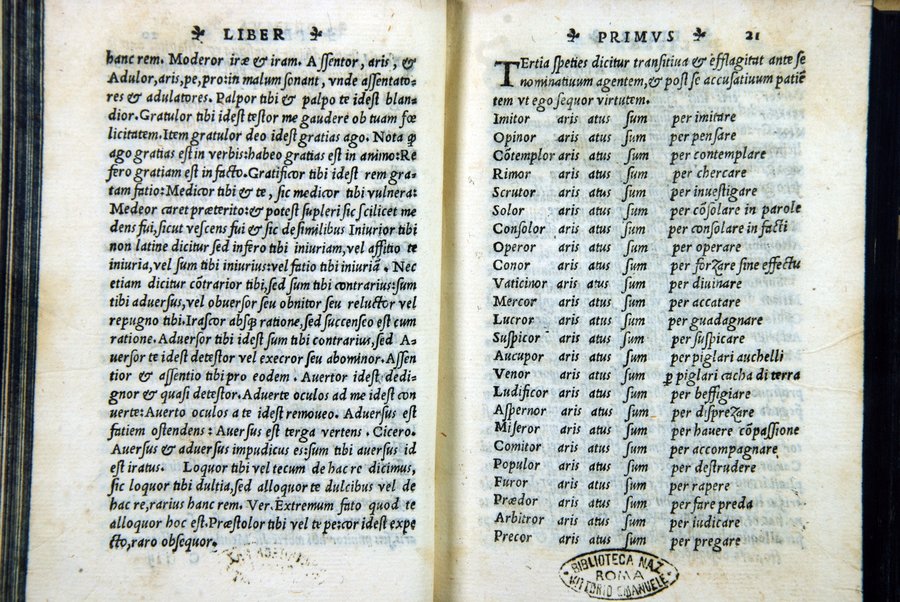 LIBER
hanc rem. Moderor iræ & iram. Assentor, aris, &
Adulor,aris,pe,pro:in malum sonant, vnde assentato-
res & adulatores. Palpor tibi & palpo te idest blan-
dior. Gratulor tibi idest testor me gaudere ob tuam fœ
licitatem. Item gratulor deo idest gratias ago. Nota ꝙ
ago gratias est in verbis: habeo gratias est in animo: Re
fero gratiam est in facto. Gratificor tibi idest rem gra-
tam fatio: Medicor tibi & te, sic medicor tibi vulnera:
Medeor caret præterito: & potest supleri sic scilicet me
dens fui, sicut vescens fui & sic de similibus Iniurior tibi
non latine dicitur sed infero tibi iniuriam, vel affitio te
iniuria, vel sum tibi iniurius: vel fatio tibi iniuriã. Nec
etiam dicitur cõtrarior tibi, sed sum tibi contrarius: sum
tibi aduersus, vel obuersor seu obnitor seu reluctor vel
repugno tibi. Irascor absq; ratione, sed succenseo est cum
ratione. Aduersor tibi idest sum tibi contrarius, sed A-
uersor te idest detestor vel execror seu abominor. Assen
tior & assentio tibi pro eodem. Auertor idest dedi-
gnor & quasi detestor. Aduerte oculos ad me idest con
uerte: Auerto oculos a te idest remoueo. Aduersus est
fatiem ostendens: Auersus est terga vertens. Cicero.
Auersus & aduersus impudicus es: sum tibi auersus id
est iratus. Loquor tibi vel tecum de hac re dicimus,
sic loquor tibi dultia, sed alloquor te dulcibus vel de
hac re, rarius hanc rem. Ver. Extremum fato quod te
alloquor hoc est. Præstolor tibi vel te pe: cor idest expe
cto, raro obsequor.
PRIMVS 21
TErtia speties dicitur transitiua & efflagitat ante se
nominatiuum agentem, & post se accusatiuum patiẽ
tem vt ego sequor virtutem.
Imitor aris atus sum per imitare
Opinor aris atus sum per pensare
Cõtemplor aris atus sum per contemplare
Rimor aris atus sum per chercare
Scrutor aris atus sum per inuestigare
Solor aris atus sum per cõsolare in parole
Consolor aris atus sum per consolare in facti
Operor aris atus sum per operare
Conor aris atus sum per forzare sine effectu
Vaticinor aris atus sum per diuinare
Mercor aris atus sum per accatare
Lucror aris atus sum per guadagnare
Suspicor aris atus sum per suspicare
Aucupor aris atus sum per piglari auchelli
Venor aris atus sum ꝑ piglari cacha di terra
Ludificor aris atus sum per beffigiare
Aspernor aris atus sum per disprezare
Miseror aris atus sum per hauere cõpassione
Comitor aris atus sum per accompagnare
Populor aris atus sum per destrudere
Furor aris atus sum per rapere
Prædor aris atus sum per fare preda
Arbitror aris atus sum per iudicare
Precor aris atus sum per pregare
BIBLIOTECA NAZ.
ROMA
VITTORIO EMANUELE